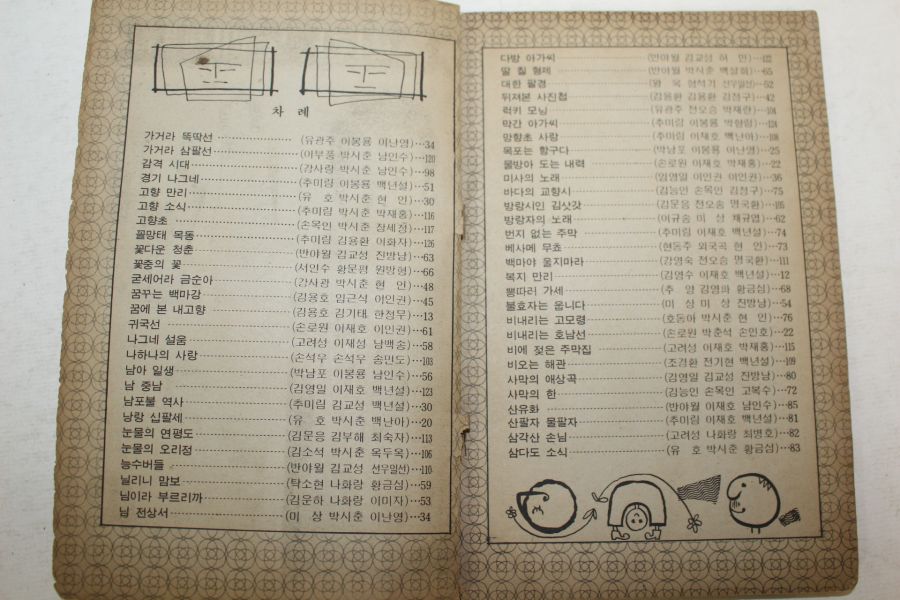 차 례
가거라 똑딱선 (유광주 이봉룡 이난영) 34
가거라 삼팔선 (이부풍 박시춘 남인수) 120
감격 시대 (강사랑 박시춘 남인수) 98
경기 나그네 (추미림 이봉룡 백년설) 51
고향 만리 (유 호 박시춘 현 인) 30
고향 소식 (추미림 박시춘 박재홍) 116
고향초 (손목인 박시춘 장세정) 117
꼴망태 목동 (추미림 김용환 이화자) 126
꽃다운 청춘 (반야월 김교성 진방남) 63
꽃중의 꽃 (서인수 황문평 원방형) 66
굳세어라 금순아 (강사광 박시춘 현 인) 48
꿈꾸는 백마강 (김용호 임근석 이인권) 45
꿈에 본 내고향 (김용호 김기태 한정무) 13
귀국선 (손로원 이재호 이인권) 61
나그네 설움 (고려성 이재성 남백송) 58
나하나의 사랑 (손석우 손석우 송민도) 103
남아 일생 (박남포 이봉룡 남인수) 56
남 중남 (김영일 이재호 백년설) 123
남포불 역사 (추미림 김교성 백년설) 30
낭랑 십팔세 (유 호 박시춘 백난아) 20
눈물의 연평도 (김문응 김부해 최숙자) 113
눈물의 오리정 (김소석 박시춘 옥두옥) 106
능수버들 (반야월 김교성 선우일선) 110
닐리니 맘보 (탁소현 나화랑 황금심) 59
님이라 부르리까 (김운하 나화랑 이미자) 53
님 전상서 (미 상 박시춘 이난영) 34
다방 아가씨 (반야월 김교성 허 민)
딸 칠 형제 (반야월 박시춘 백설희) 65
대한 팔경 (왕 옥 형석기 선우일선) 52
뒤져본 사진첩 (김용환 김용환 김정구) 42
럭키 모닝 (유광주 전오승 박재란) 104
막간 아가씨 (추미림 이봉룡 박향림) 124
망향초 사랑 (추미림 이재호 백난아) 108
목포는 항구다 (박남포 이봉룡 이난영) 25
물방아 도는 내력 (손로원 이재호 박재홍) 22
미사의 노래 (임영일 이인권 이인권) 36
바다의 교향시 (김능인 손목인 김정구) 75
방랑시인 김삿갓 (김문응 전오승 명국환) 105
방랑자의 노래 (이규송 미 상 채규엽) 62
번지 없는 주막 (추미림 이재호 백년설) 74
베사메 무쵸 (현동주 외국곡 현 인) 73
백마야 울지마라 (강영숙 전오승 명국환) 111
복지 만리 (김영수 이재호 백년설) 12
뽕따러 가세 (추 양 김영파 황금심) 68
불효자는 웁니다 (미 상 미 상 진방남) 54
비내리는 고모령 (호동아 박시춘 현 인) 76
비내리는 호남선 (손로원 박춘석 손인호) 22
비에 젖은 주막집 (고려성 이재호 박재홍) 115
비오는 해관 (조경환 전기현 백년설) 109
사막의 애상곡 (김영일 김교성 진방남) 80
사막의 한 (김능인 손목인 고복수) 72
산유화 (반야월 이재호 남인수) 85
산팔자 물팔자 (추미림 이재호 백년설) 81
삼각산 손님 (고려성 나화랑 최병호) 82
삼다도 소식 (유 호 박시춘 황금심) 83